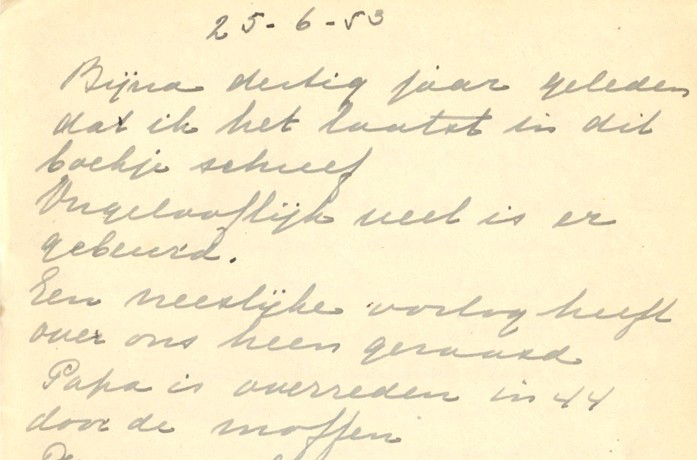 25-6-53
Bijna dertig jaar geleden
dat ik het laatst in dit
boekje schreef
Ongelooflijk veel is er
gebeurd.
Een vreeslijke oorlog heeft
over ons heen geraasd
Papa is overreden in 44
door de moffen